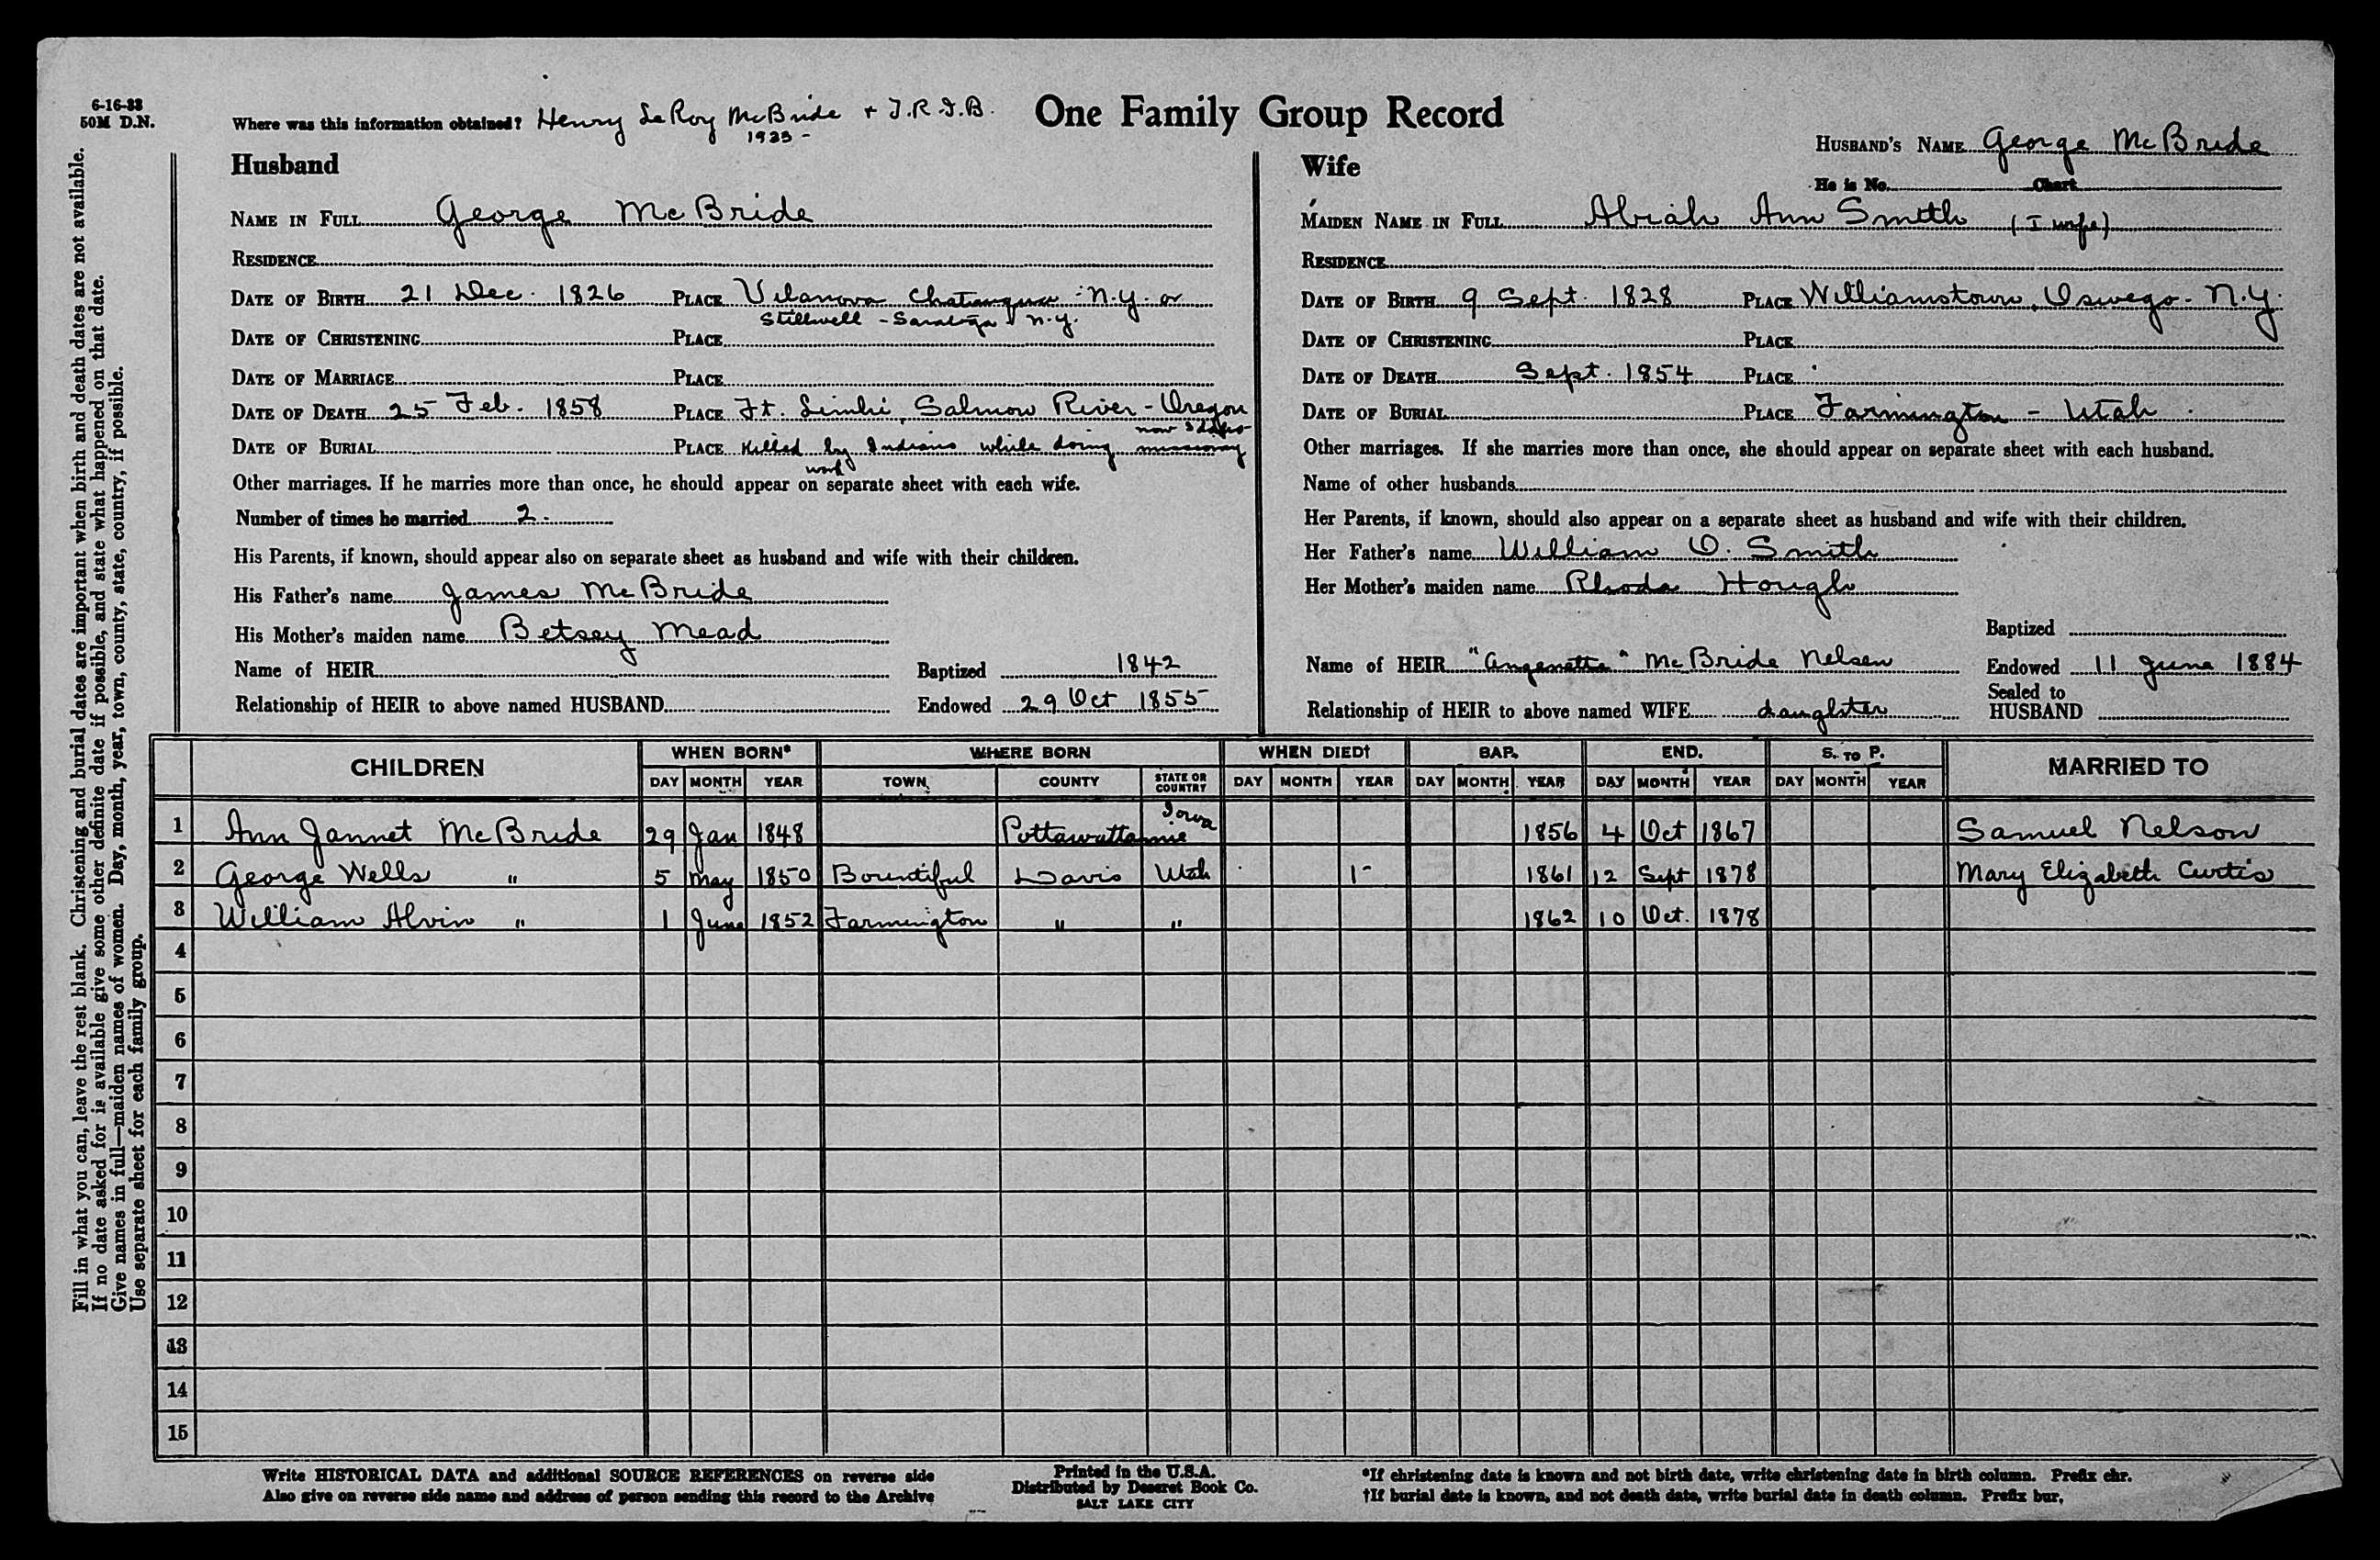 6-16-33
50M D.N.
Where was this information obtained? Henry LeRoy McBride + T.R.I.B.
1935 -
One Family Group Record
HUSBAND'S NAME George McBride
He is No. Chart
Husband
NAME IN FULL George McBride
RESIDENCE
DATE OF BIRTH 21 Dec. 1826 PLACE Vilanova Chatauqua - N.Y. or
Stillwell - Saratoga N.Y.
DATE OF CHRISTENING PLACE
DATE OF MARRIAGE PLACE
DATE OF DEATH 25 Feb. 1858 PLACE Ft. Limhi, Salmon River - Oregon
now Idaho
DATE OF BURIAL PLACE Killed by Indians while doing missionary
work
Other marriages. If he marries more than once, he should appear on separate sheet with each wife.
Number of times he married 2.
His Parents, if known, should appear also on separate sheet as husband and wife with their children.
His Father's name James McBride
His Mother's maiden name Betsey Mead
Name of HEIR Baptized 1842
Relationship of HEIR to above named HUSBAND Endowed 29 Oct 1855
Wife
MAIDEN NAME IN FULL Abiah Ann Smith (I wife)
RESIDENCE
DATE OF BIRTH 9 Sept. 1828 PLACE Williamstown, Oswego - N.Y.
DATE OF CHRISTENING PLACE
DATE OF DEATH Sept. 1854 PLACE
DATE OF BURIAL PLACE Farmington - Utah
Other marriages. If she marries more than once, she should appear on separate sheet with each husband.
Name of other husbands
Her Parents, if known, should also appear on a separate sheet as husband and wife with their children.
Her Father's name William O. Smith
Her Mother's maiden name Rhoda Hough
Baptized
Name of HEIR "Angenetta" McBride Nelsen Endowed 11 June 1884
Relationship of HEIR to above named WIFE daughter Sealed to HUSBAND
CHILDREN WHEN BORN* WHERE BORN WHEN DIED† BAP. END. S. TO P. MARRIED TO
DAY MONTH YEAR TOWN COUNTY STATE OR COUNTRY DAY MONTH YEAR DAY MONTH YEAR DAY MONTH YEAR DAY MONTH YEAR
1 Ann Jannet McBride 29 Jan 1848 Pottawattamie Iowa 1856 4 Oct 1867 Samuel Nelson
2 George Wells " 5 May 1850 Bountiful Davis Utah 1- 1861 12 Sept 1878 Mary Elizabeth Curtis
3 William Alvin " 1 June 1852 Farmington " " 1862 10 Oct. 1878
4
5
6
7
8
9
10
11
12
13
14
15
Fill in what you can, leave the rest blank. Christening and burial dates are important when birth and death dates are not available.
If no date asked for is available give some other definite date if possible, and state what happened on that date.
Give names in full—maiden names of women. Day, month, year, town, county, state, country, if possible.
Use separate sheet for each family group.
Write HISTORICAL DATA and additional SOURCE REFERENCES on reverse side
Also give on reverse side name and address of person sending this record to the Archive
Printed in the U.S.A.
Distributed by Deseret Book Co.
SALT LAKE CITY
*If christening date is known and not birth date, write christening date in birth column. Prefix chr.
†If burial date is known, and not death date, write burial date in death column. Prefix bur.